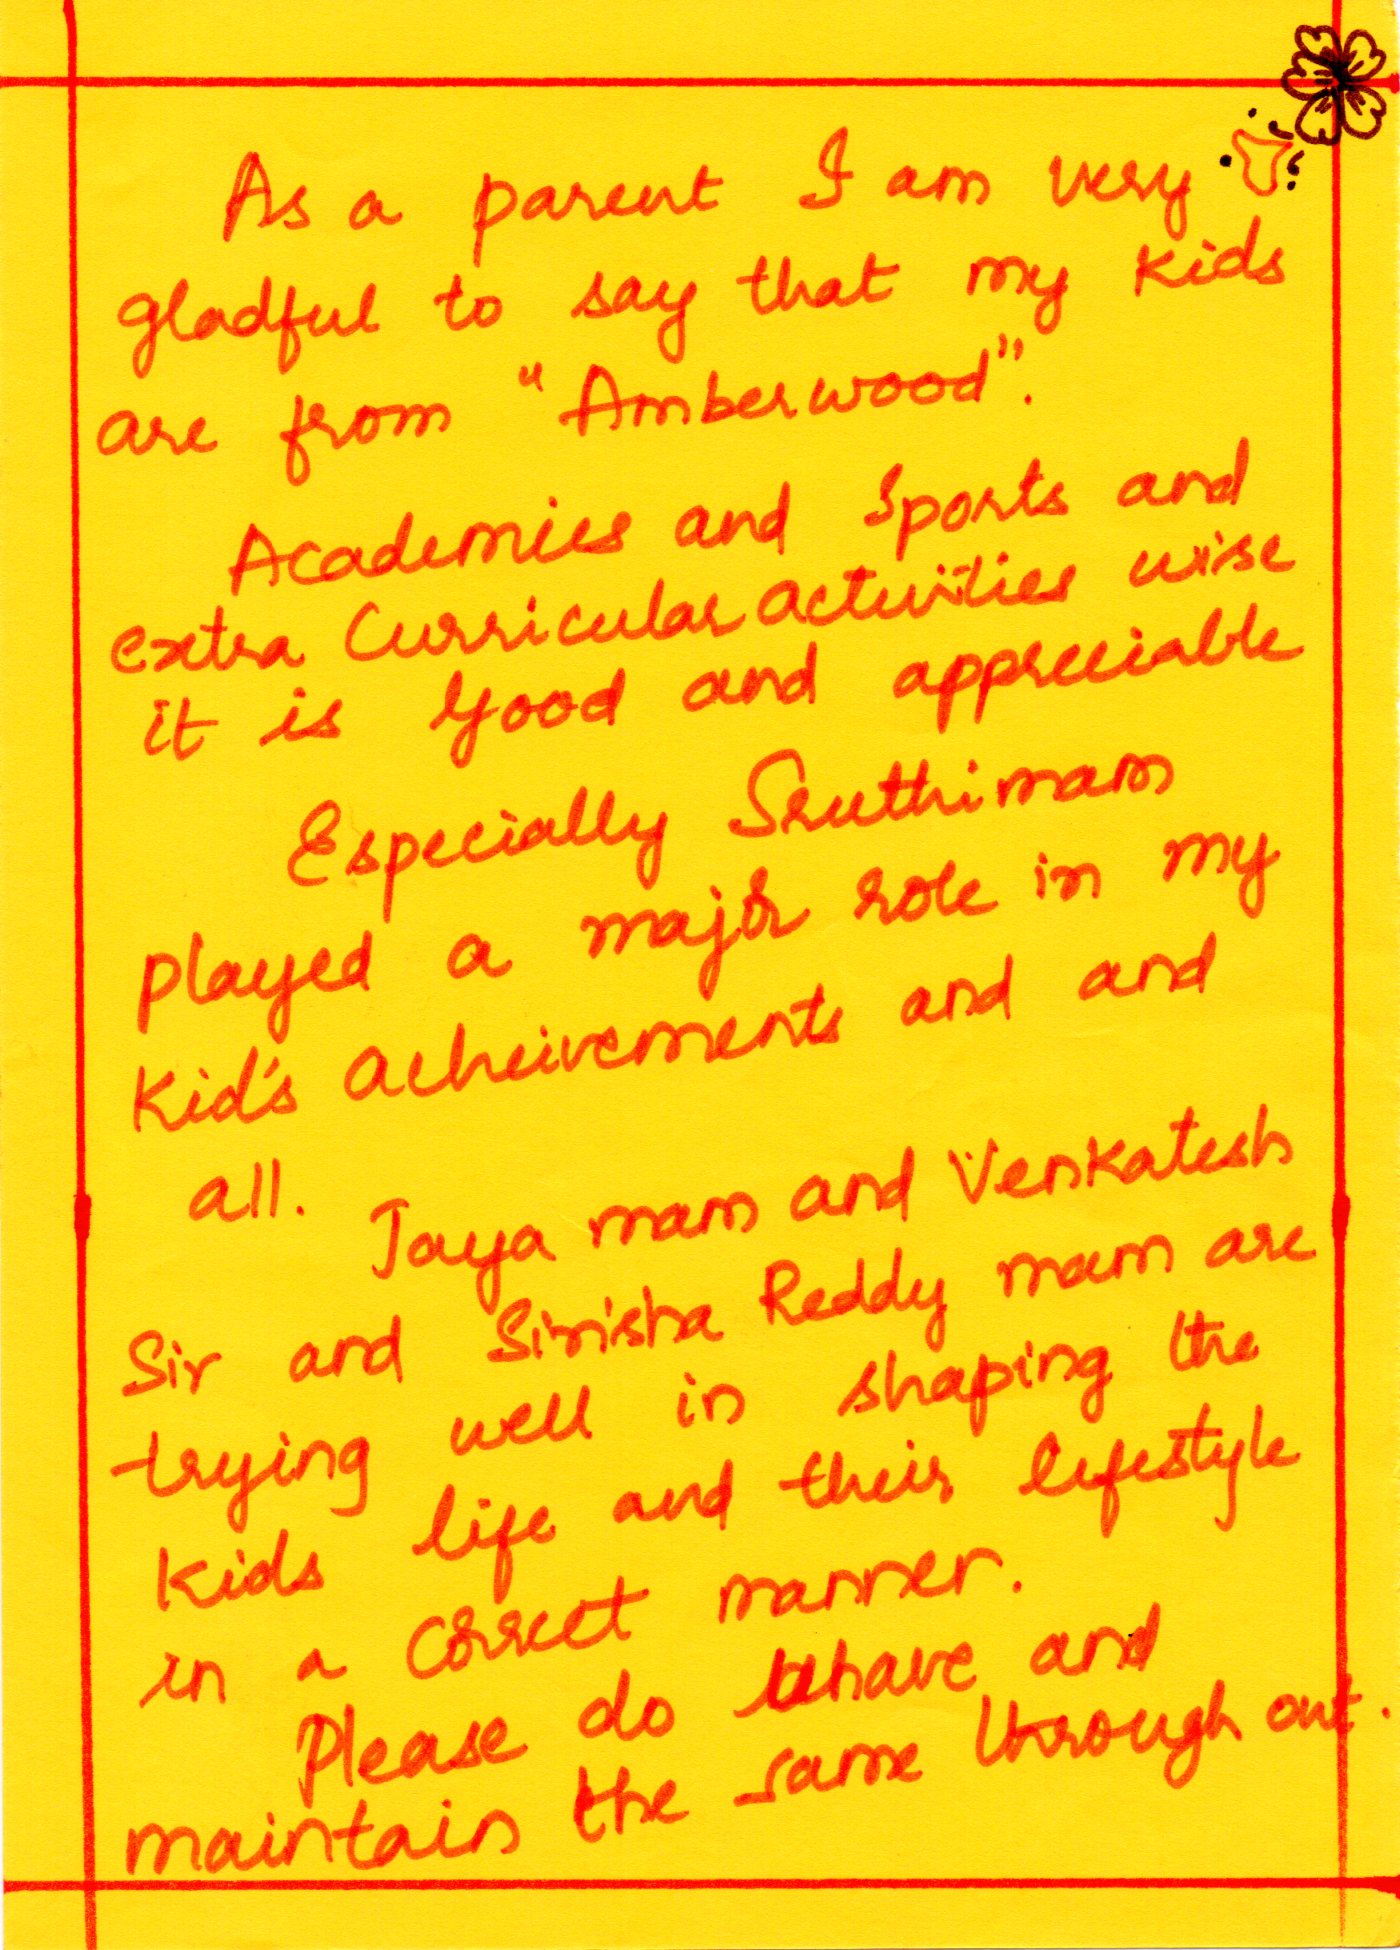 As a parent I am very
gladful to say that my kids
are from "Amberwood".
Academics and Sports and
extra Curricular activities wise
it is good and appreciable
Especially Sruthi mam
played a major role in my
kid's acheivements and and
all.
Jaya mam and Venkatesh
Sir and Sirisha Reddy mam are
trying well in shaping the
kids life and their lifestyle
in a correct manner.
Please do behave and
maintain the same through out.